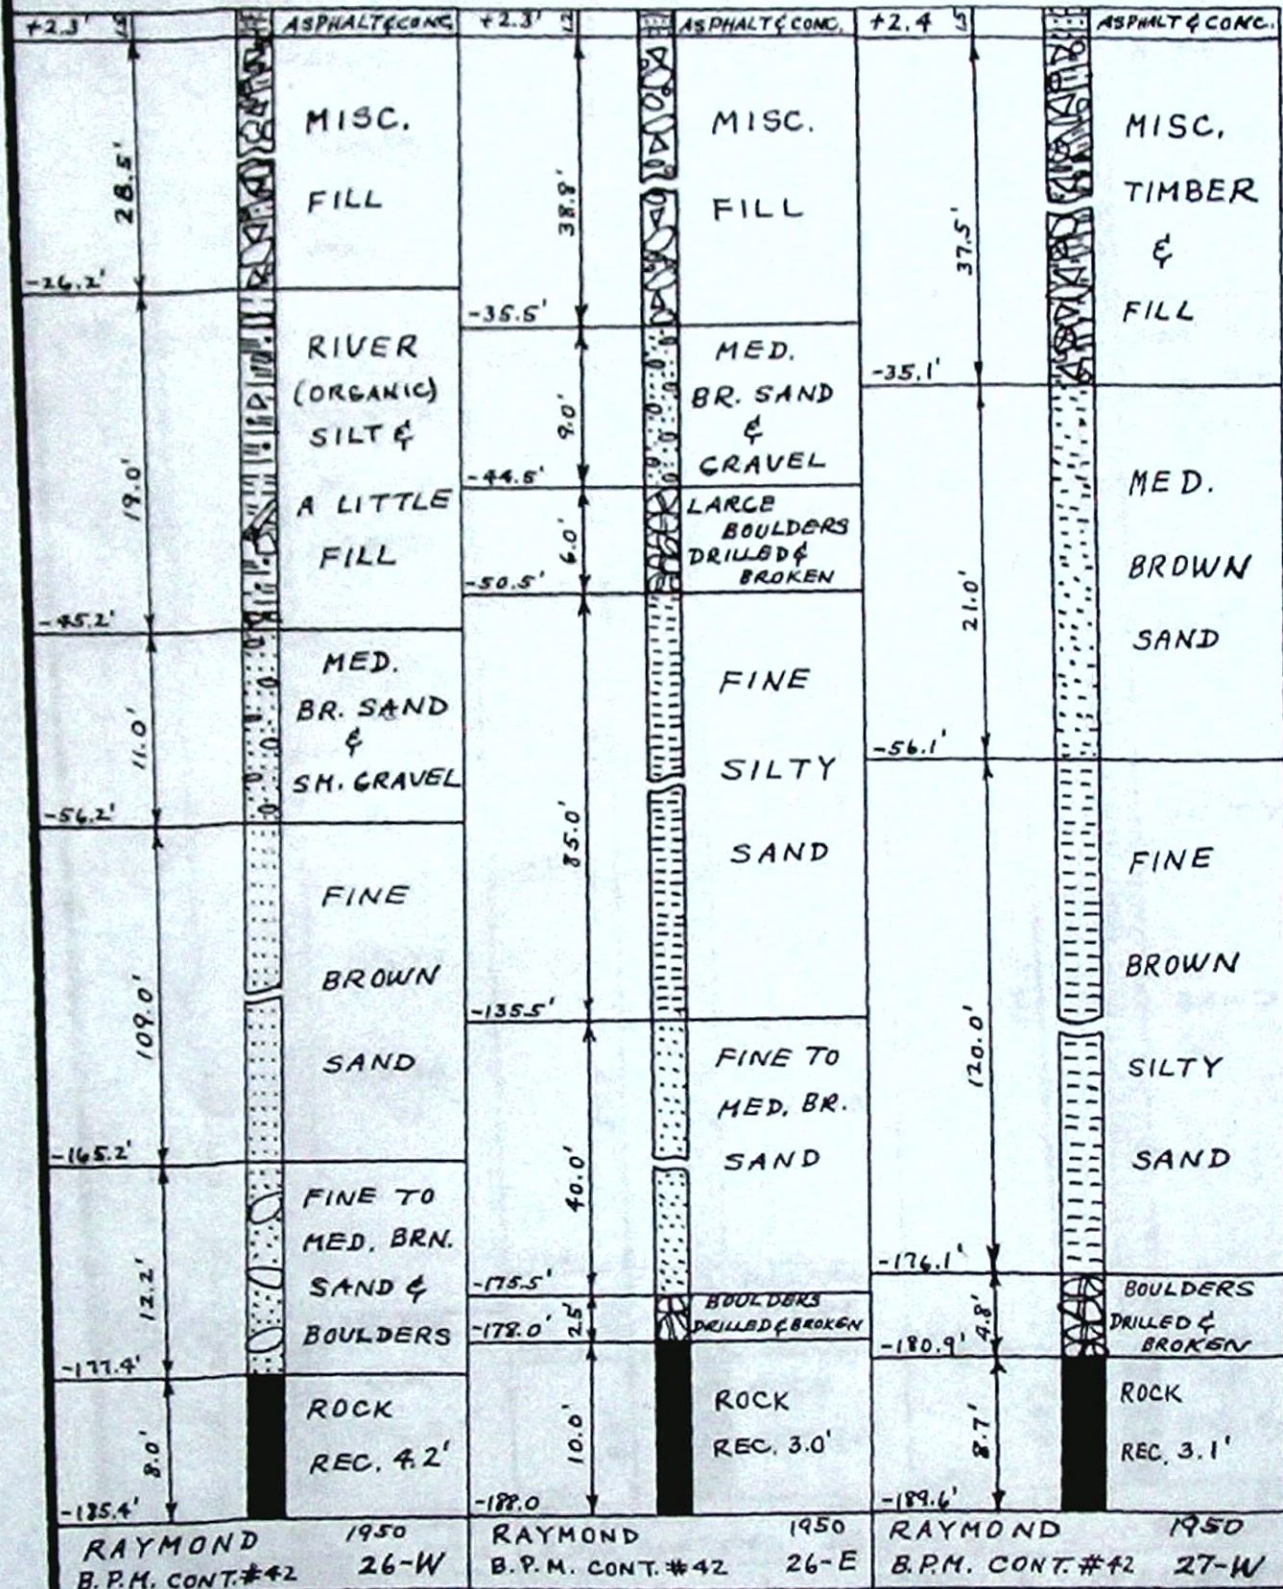 +2.3' 1.5 ASPHALT & CONC.
MISC.
FILL
28.5'
-26.2'
RIVER
(ORGANIC)
SILT &
A LITTLE
FILL
19.0'
-45.2'
MED.
BR. SAND
&
SM. GRAVEL
11.0'
-56.2'
FINE
BROWN
SAND
109.0'
-165.2'
FINE TO
MED. BRN.
SAND &
BOULDERS
12.2'
-177.4'
ROCK
REC. 4.2'
8.0'
-185.4'
RAYMOND 1950
B.P.M. CONT. #42 26-W
+2.3' ASPHALT & CONC.
MISC.
FILL
38.8'
-35.5'
MED.
BR. SAND
&
GRAVEL
9.0'
-44.5'
LARGE
BOULDERS
DRILLED &
BROKEN
6.0'
-50.5'
FINE
SILTY
SAND
85.0'
-135.5'
FINE TO
MED. BR.
SAND
40.0'
-175.5'
BOULDERS
DRILLED & BROKEN
2.5
-178.0'
ROCK
REC. 3.0'
10.0'
-188.0
RAYMOND 1950
B.P.M. CONT. #42 26-E
+2.4 ASPHALT & CONC.
MISC.
TIMBER
&
FILL
37.5'
-35.1'
MED.
BROWN
SAND
21.0'
-56.1'
FINE
BROWN
SILTY
SAND
120.0'
-176.1'
BOULDERS
DRILLED &
BROKEN
4.8'
-180.9'
ROCK
REC. 3.1'
8.7'
-189.6'
RAYMOND 1950
B.P.M. CONT. #42 27-W